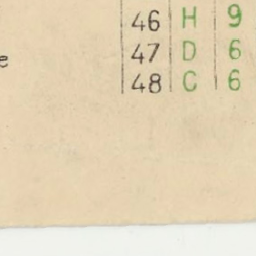 46 H 9
e 47 D 6
48 C 6